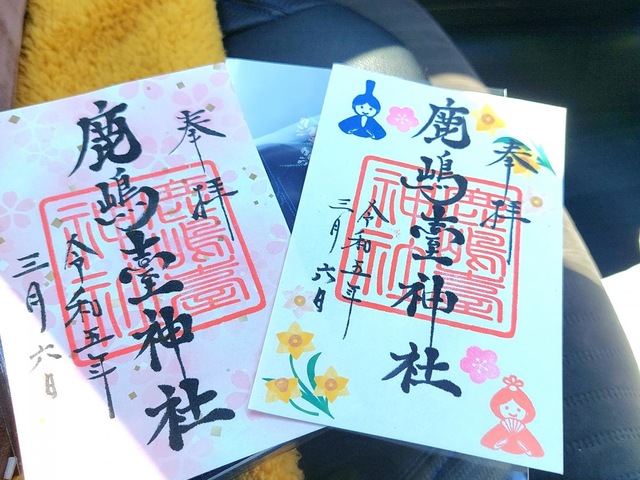 奉拝
鹿嶋臺神社
令和五年
三月六日
鹿嶋臺神社
奉拝
鹿嶋臺神社
令和五年
三月六日
鹿嶋臺神社